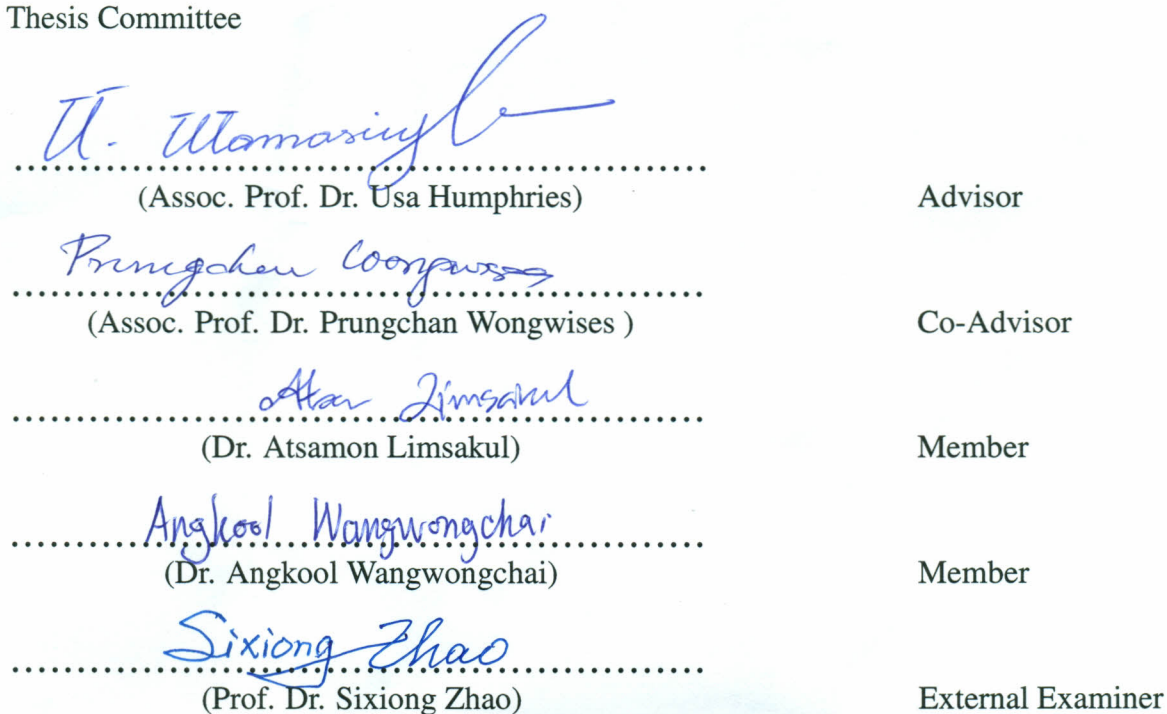 Thesis Committee
U.
(Assoc. Prof. Dr. Usa Humphries) Advisor
Prungchan
(Assoc. Prof. Dr. Prungchan Wongwises ) Co-Advisor
Limsakul
(Dr. Atsamon Limsakul) Member
Angkool Wangwongchai
(Dr. Angkool Wangwongchai) Member
Sixiong Zhao
(Prof. Dr. Sixiong Zhao) External Examiner